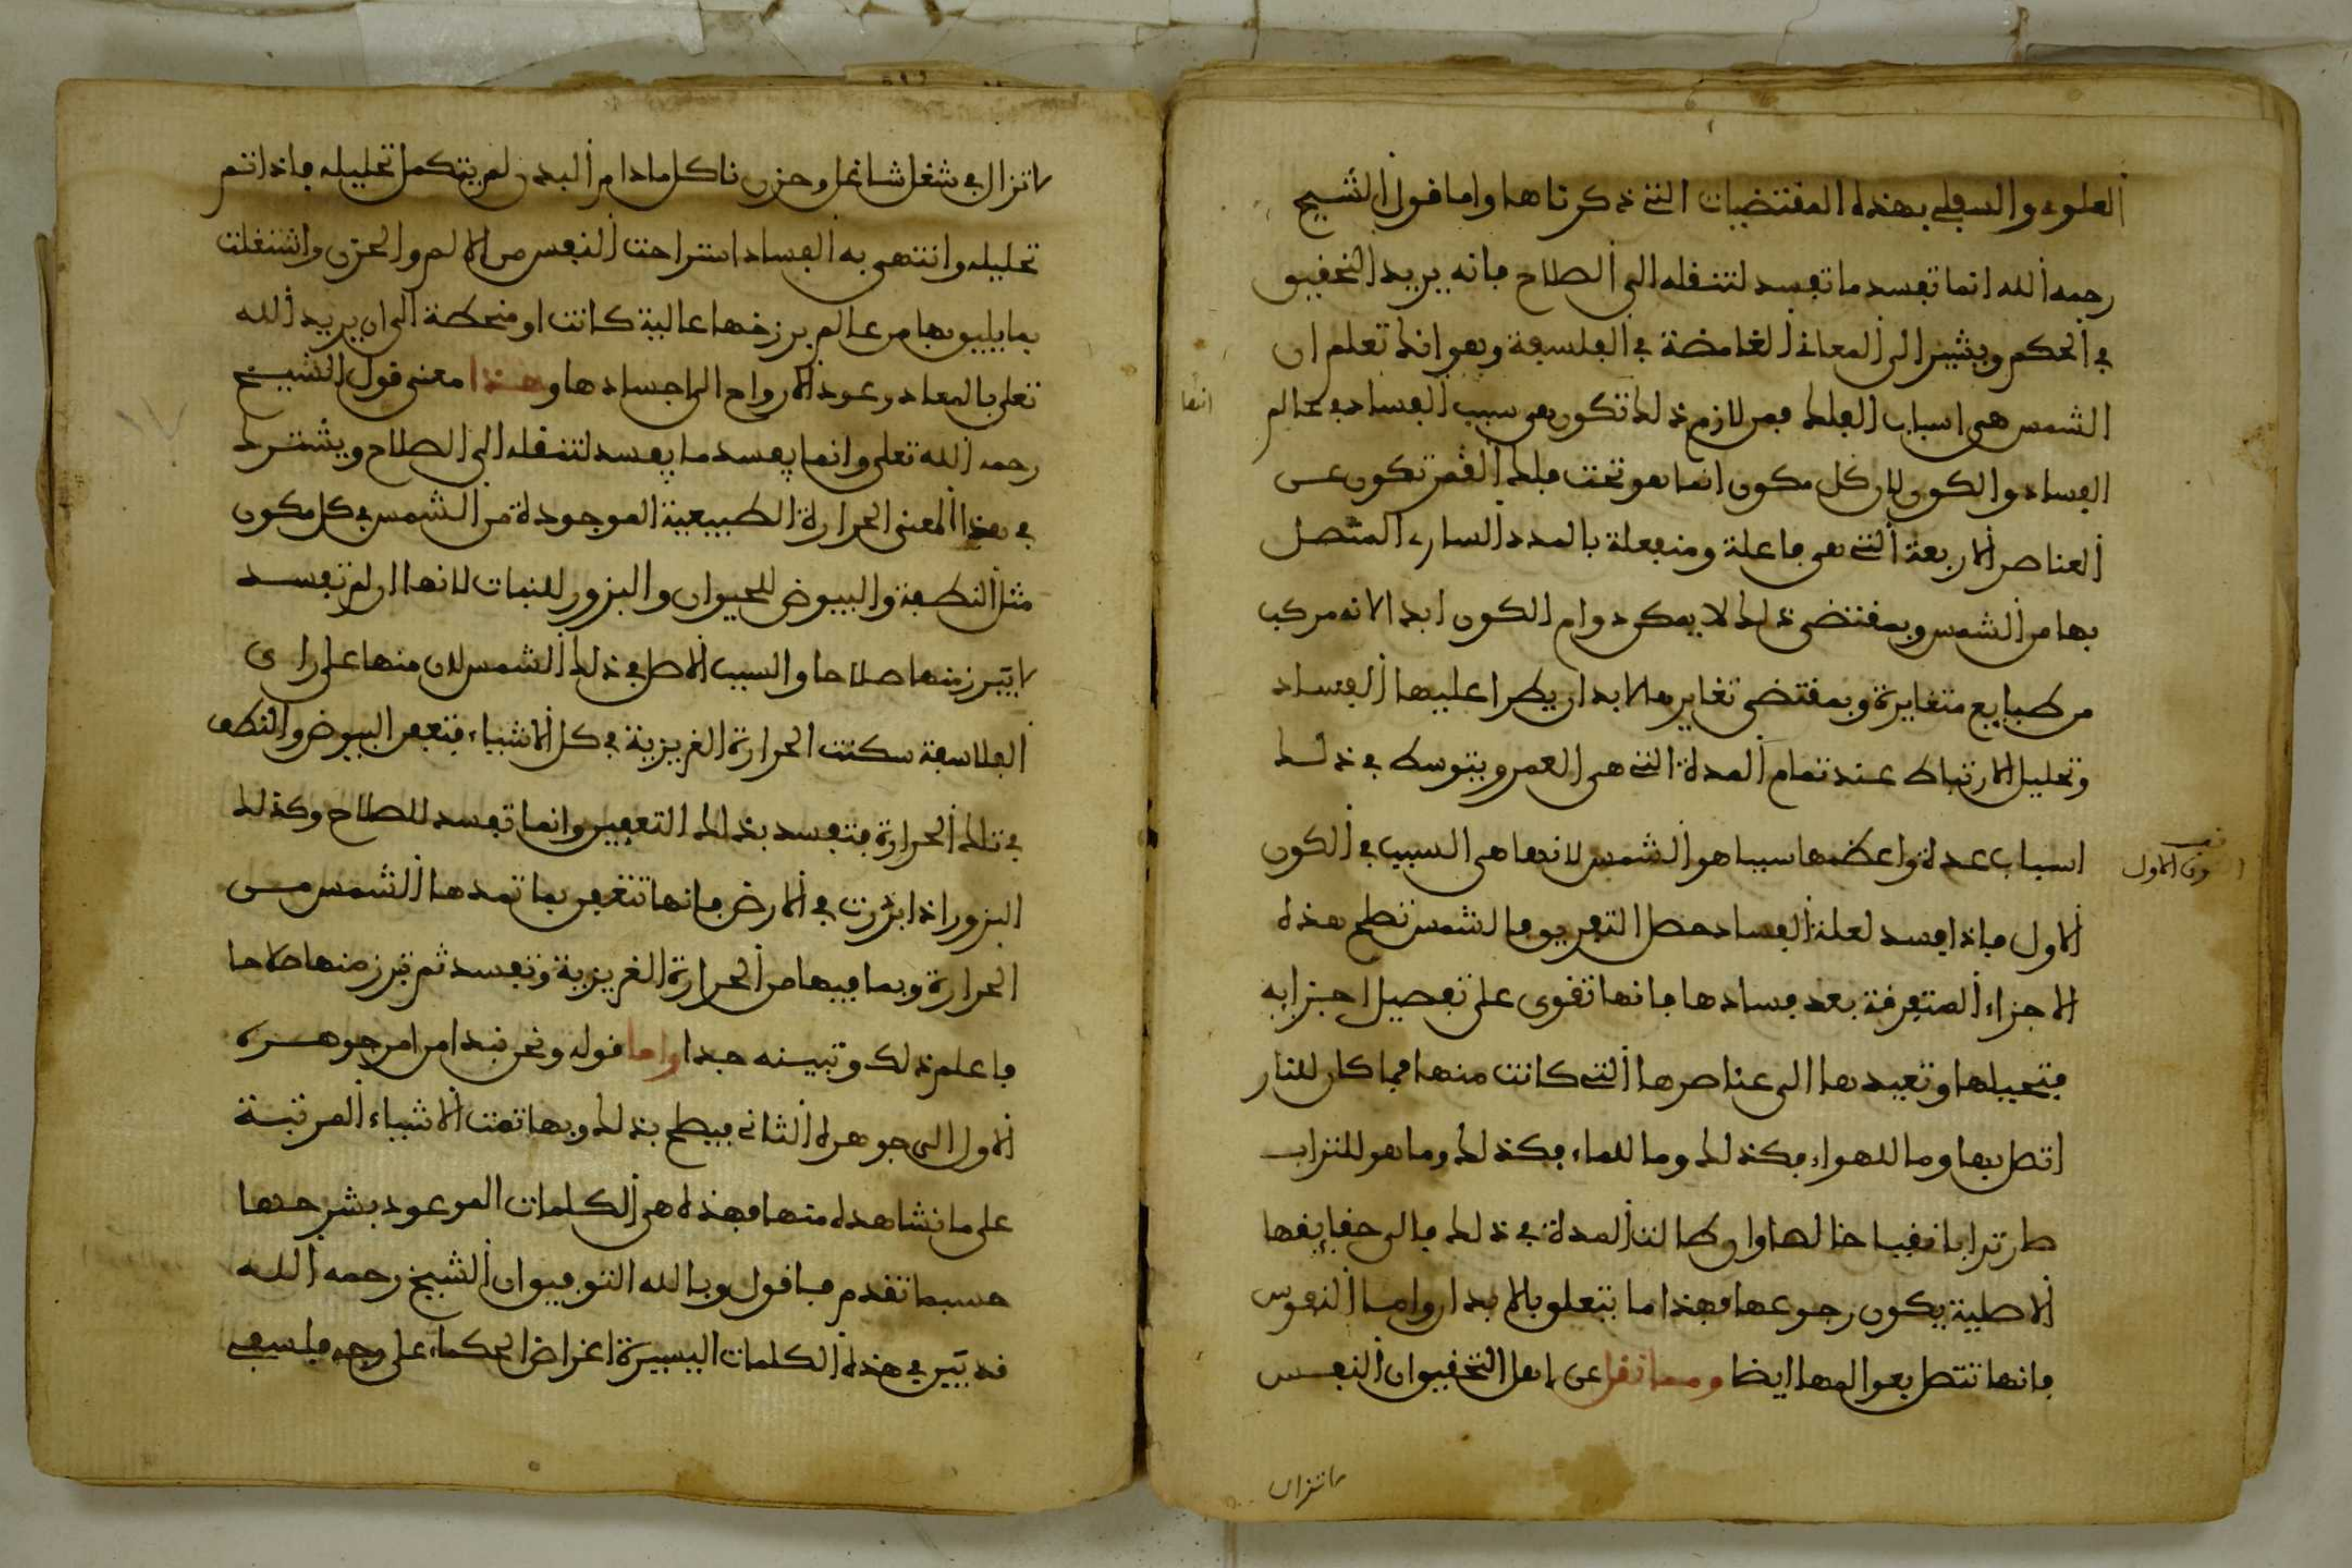 العلوي والسفلي بهذه المقتضيات التي ذكرناها واما قول الشيخ
رحمه الله انما تفسد ما تفسد لتنقله الى الصلاح فانه يريد التحقيق
في الحكم ويشير الى المعاني الغامضة في الفلسفة وهو انك تعلم ان
الشمس هي اسباب الفلك فمن لازم ذلك تكون هي سبب الفساد في عالم
انها
الفساد والكون لان كل مكون انما هو تحت فلك القمر تكون عن
العناصر الاربعة التي هي فاعلة ومنفعلة بالمدد الساري المتصل
بها من الشمس وبمقتضى ذلك لا يمكن دوام الكون ابدا لانه مركب
من طبايع متغايرة وبمقتضى تغايرها لا بد ان يطرا عليها الفساد
وتحليل الارتباط عند تمام المدة التي هي العمر ويتوسط في ذلك
اسباب عدة واعظمها سببا هو الشمس لانها هي السبب في الكون
الاول فاذا فسد لعلة الفساد حصل التفريق فالشمس تطبخ هذه
الاجزاء المتفرقة بعد فسادها فانها تقوى على تفصيل اجزايه
فتحيلها وتعيدها الى عناصرها التي كانت منها فما كان للنار
اتصل بها وما للهواء فكذلك وما للماء فكذلك وما هو للتراب
صار ترابا نقيا خالصا وان طالت المدة في ذلك فالى حقايقها
الاصلية يكون رجوعها فهذا ما يتعلق بالابدان واما النفوس
فانها تتصل بعوالمها ايضا ومما نقل عن اهل التحقيق ان النفس
لا تزال
لا تزال في شغل شاغل وحزن ناكل ما دام البدن لم يتكمل تحليله فاذا تم
تحليله وانتهى به الفساد استراحت النفس من الالم والحزن واشتغلت
بما يليق بها من عالم برزخها عالية كانت او منحطة الى ان يريد الله
تعلى بالمعاد وعود الارواح الى اجسادها وهذا معنى قول الشيخ
رحمه الله تعلى وانما يفسد ما يفسد لتنقله الى الصلاح ويشترك
في هذا المعنى الحرارة الطبيعية الموجودة من الشمس في كل مكون
مثل النطفة والبيوض للحيوان والبزور للنبات لانها ان لم تفسد
لا يبرز منها صلاحا والسبب الاصل في ذلك الشمس لان منها على راي
الفلاسفة سكنت الحرارة الغريزية في كل الاشياء فتعفن البيوض والنطف
في تلك الحرارة فتفسد بذلك التعفين وانما تفسد للصلاح وكذلك
البزور اذا بزرت في الارض فانها تتعفن بما تمدها الشمس من
الحرارة وبما فيها من الحرارة الغريزية وتفسد ثم تبرز منها صلاحا
فاعلم ذلك وتبينه جدا واما قوله ونحن نبدا من امر جوهره
الاول الى جوهره الثاني فيطبخ بذلك وبها تمت الاشياء المرتبة
على ما نشاهده منها فهذه هي الكلمات الموعود بشرحها
حسبما تقدم فاقول وبالله التوفيق ان الشيخ رحمه الله
قد بين في هذه الكلمات اليسيرة اغراض الحكماء على وجه فلسفي